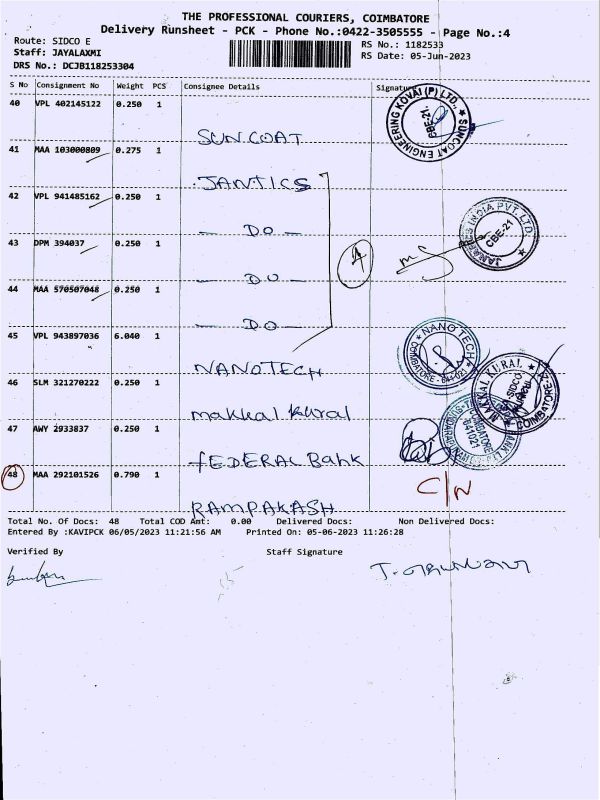 THE PROFESSIONAL COURIERS, COIMBATORE
Delivery Runsheet - PCK - Phone No.:0422-3505555 - Page No.:4
Route: SIDCO E
RS No.: 1182533
Staff: JAYALAXMI
RS Date: 05-Jun-2023
DRS No.: DCJB118253304
S No Consignment No Weight PCS Consignee Details Signature
40 VPL 402145122 0.250 1
SUNCOAT
SUNCOAT ENGINEERING KOVAI (P) LTD., CBE-21.
41 MAA 103000809 0.275 1
JANTICS
42 VPL 941485162 0.250 1
— DO —
INDIA PVT. LTD. CBE-21
43 DPM 394037 0.250 1
— DO —
4
44 MAA 570507048 0.250 1
— DO —
45 VPL 943897036 6.040 1
NANOTECH
NANO TECH COIMBATORE - 641 021
46 SLM 321270222 0.250 1
makkal kural
MAKKAL KURAL SIDCO COIMBATORE
47 AWY 2933837 0.250 1
FEDERAL Bank
COIMBATORE 641021
48 MAA 292101526 0.790 1
RAMPAKASH
C/N
Total No. Of Docs: 48 Total COD Amt: 0.00 Delivered Docs: Non Delivered Docs:
Entered By :KAVIPCK 06/05/2023 11:21:56 AM Printed On: 05-06-2023 11:26:28
Verified By Staff Signature